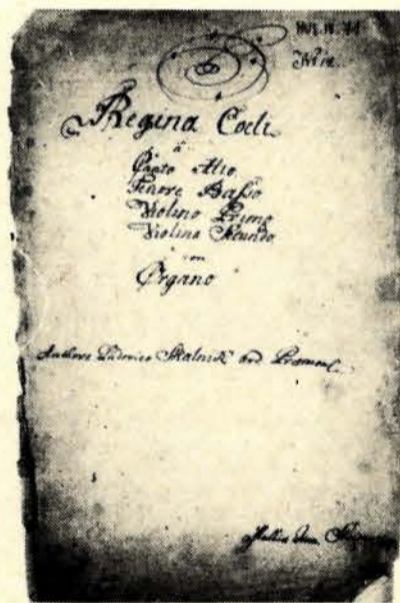 Regina Coeli
à
Canto Alto
Tenore Basso
Violino Primo
Violino Secundo
con
Organo
Authore Ludovico Skalnik ord. Praemons.